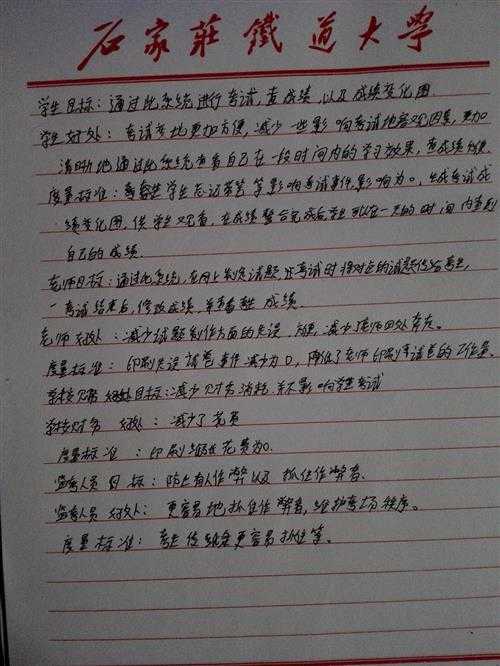 石家莊鐵道大學
学生目标：通过此系统进行考试，查成绩，以及成绩变化图.
学生好处：考试考地更加方便，减少一些影响考试地客观因素，更加
清晰地通过此系统查看自己在一段时间内的学习效果，查成绩方便.
度量标准：考学生忘记带笔等影响考试事件影响为0，生成考试成
绩变化图，供学生观看，在成绩整合完成后学生可以在一天的时间内查到
自己的成绩.
老师目标：通过此系统，在网上考试时将对应的试题传给考生，
考试结束后，修改成绩，并查看成绩.
老师好处：减少试题制作方面的失误，减少老师四处奔波。
度量标准：印刷失误试卷事件减少为0，降低了老师印刷试卷的工作量。
学校财务目标：减少财务消耗，并不影响学生考试
学校财务好处：减少了花费
度量标准：印刷花费为0.
监考人员目标：防止有人作弊以及抓住作弊者.
监考人员好处：更容易地抓住作弊者，维护考场秩序。
度量标准：考生传纸条更容易抓住等。